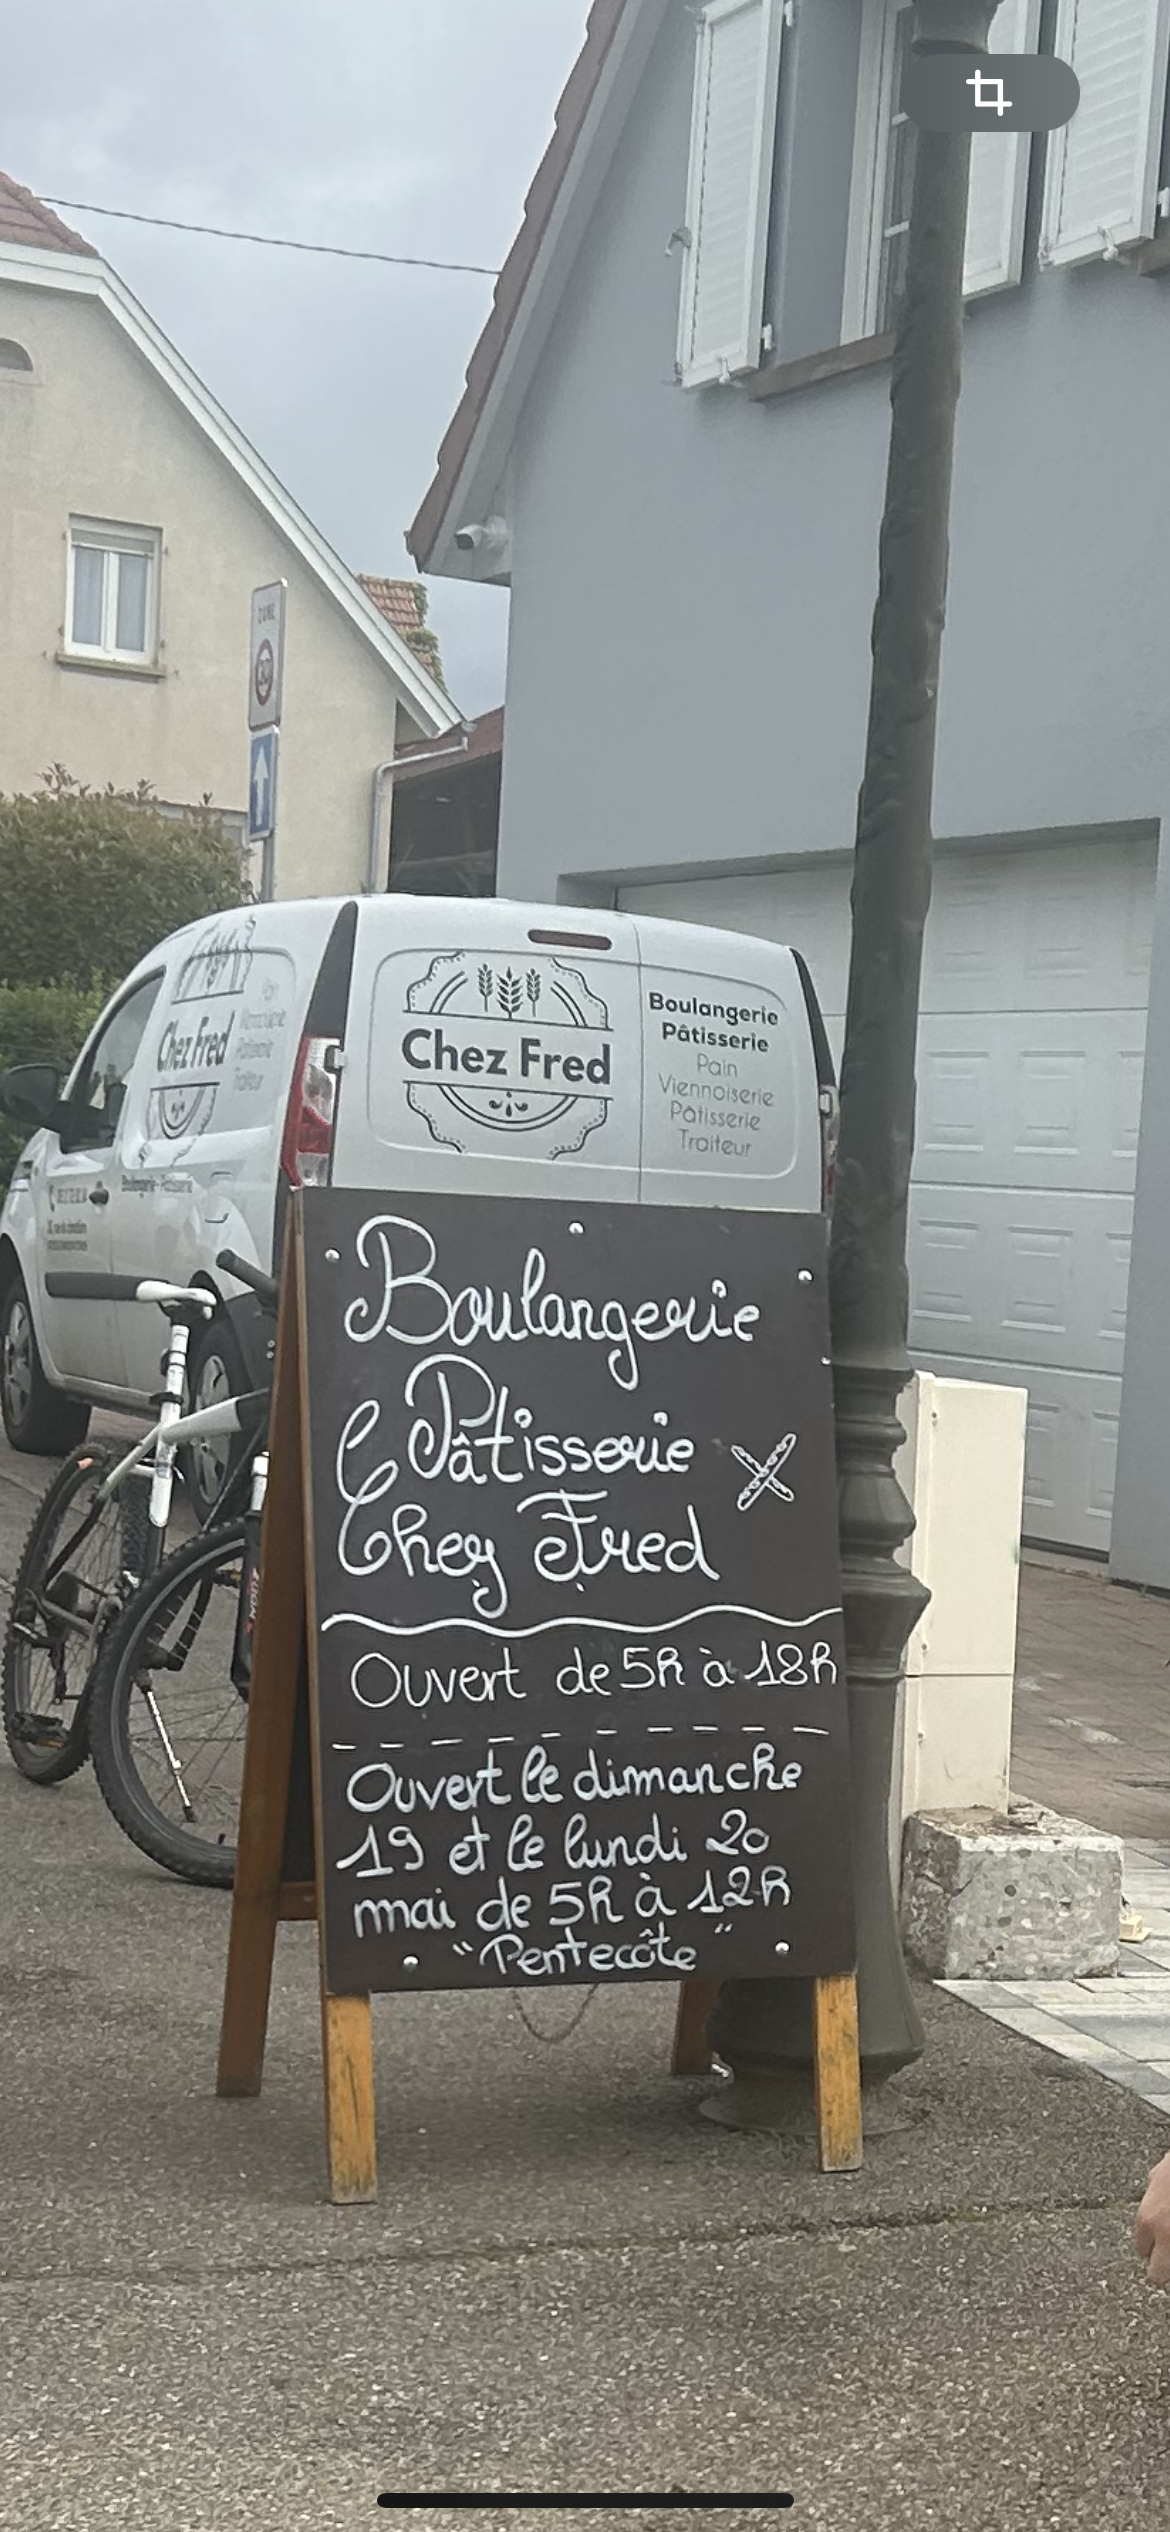 ZONE
30
Chez Fred
Pain
Viennoiserie
Patisserie
Traiteur
Boulangerie - Patisserie
Chez Fred
Boulangerie
Pâtisserie
Pain
Viennoiserie
Pâtisserie
Traiteur
Boulangerie
Pâtisserie
Chez Fred
Ouvert de 5h à 18h
Ouvert le dimanche
19 et le lundi 20
mai de 5h à 12h
"Pentecôte"